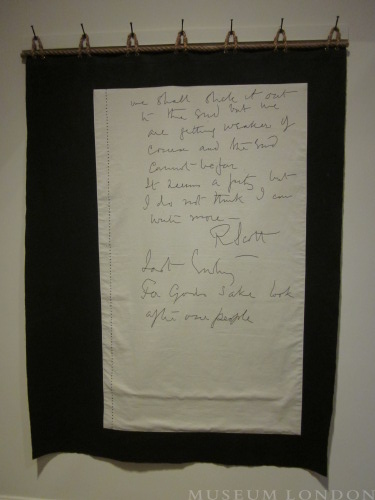 we shall stick it out
to the end but we
are getting weaker of
course and the end
cannot be far
It seems a pity but
I do not think I can
write more —
R Scott
Last Entry
For Gods sake look
after our people
MUSEUM LONDON